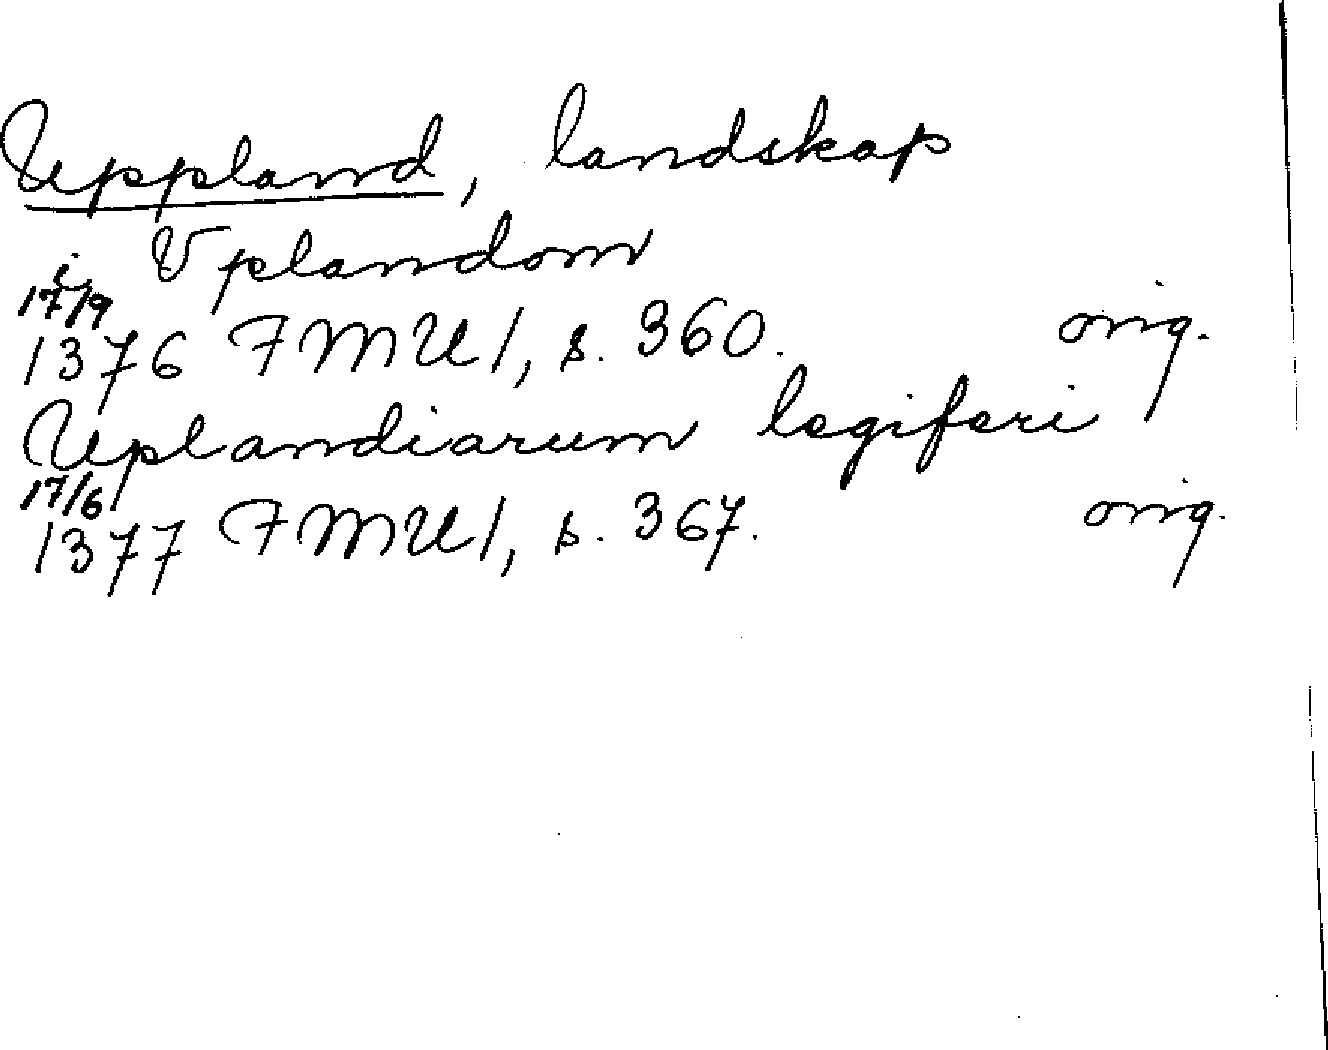 Uppland, landskap
i Vplandom
17/9
1376 FMU I, s. 360. orig.
Uplandiarum legiferi
17/6
1377 FMU I, s. 367. orig.